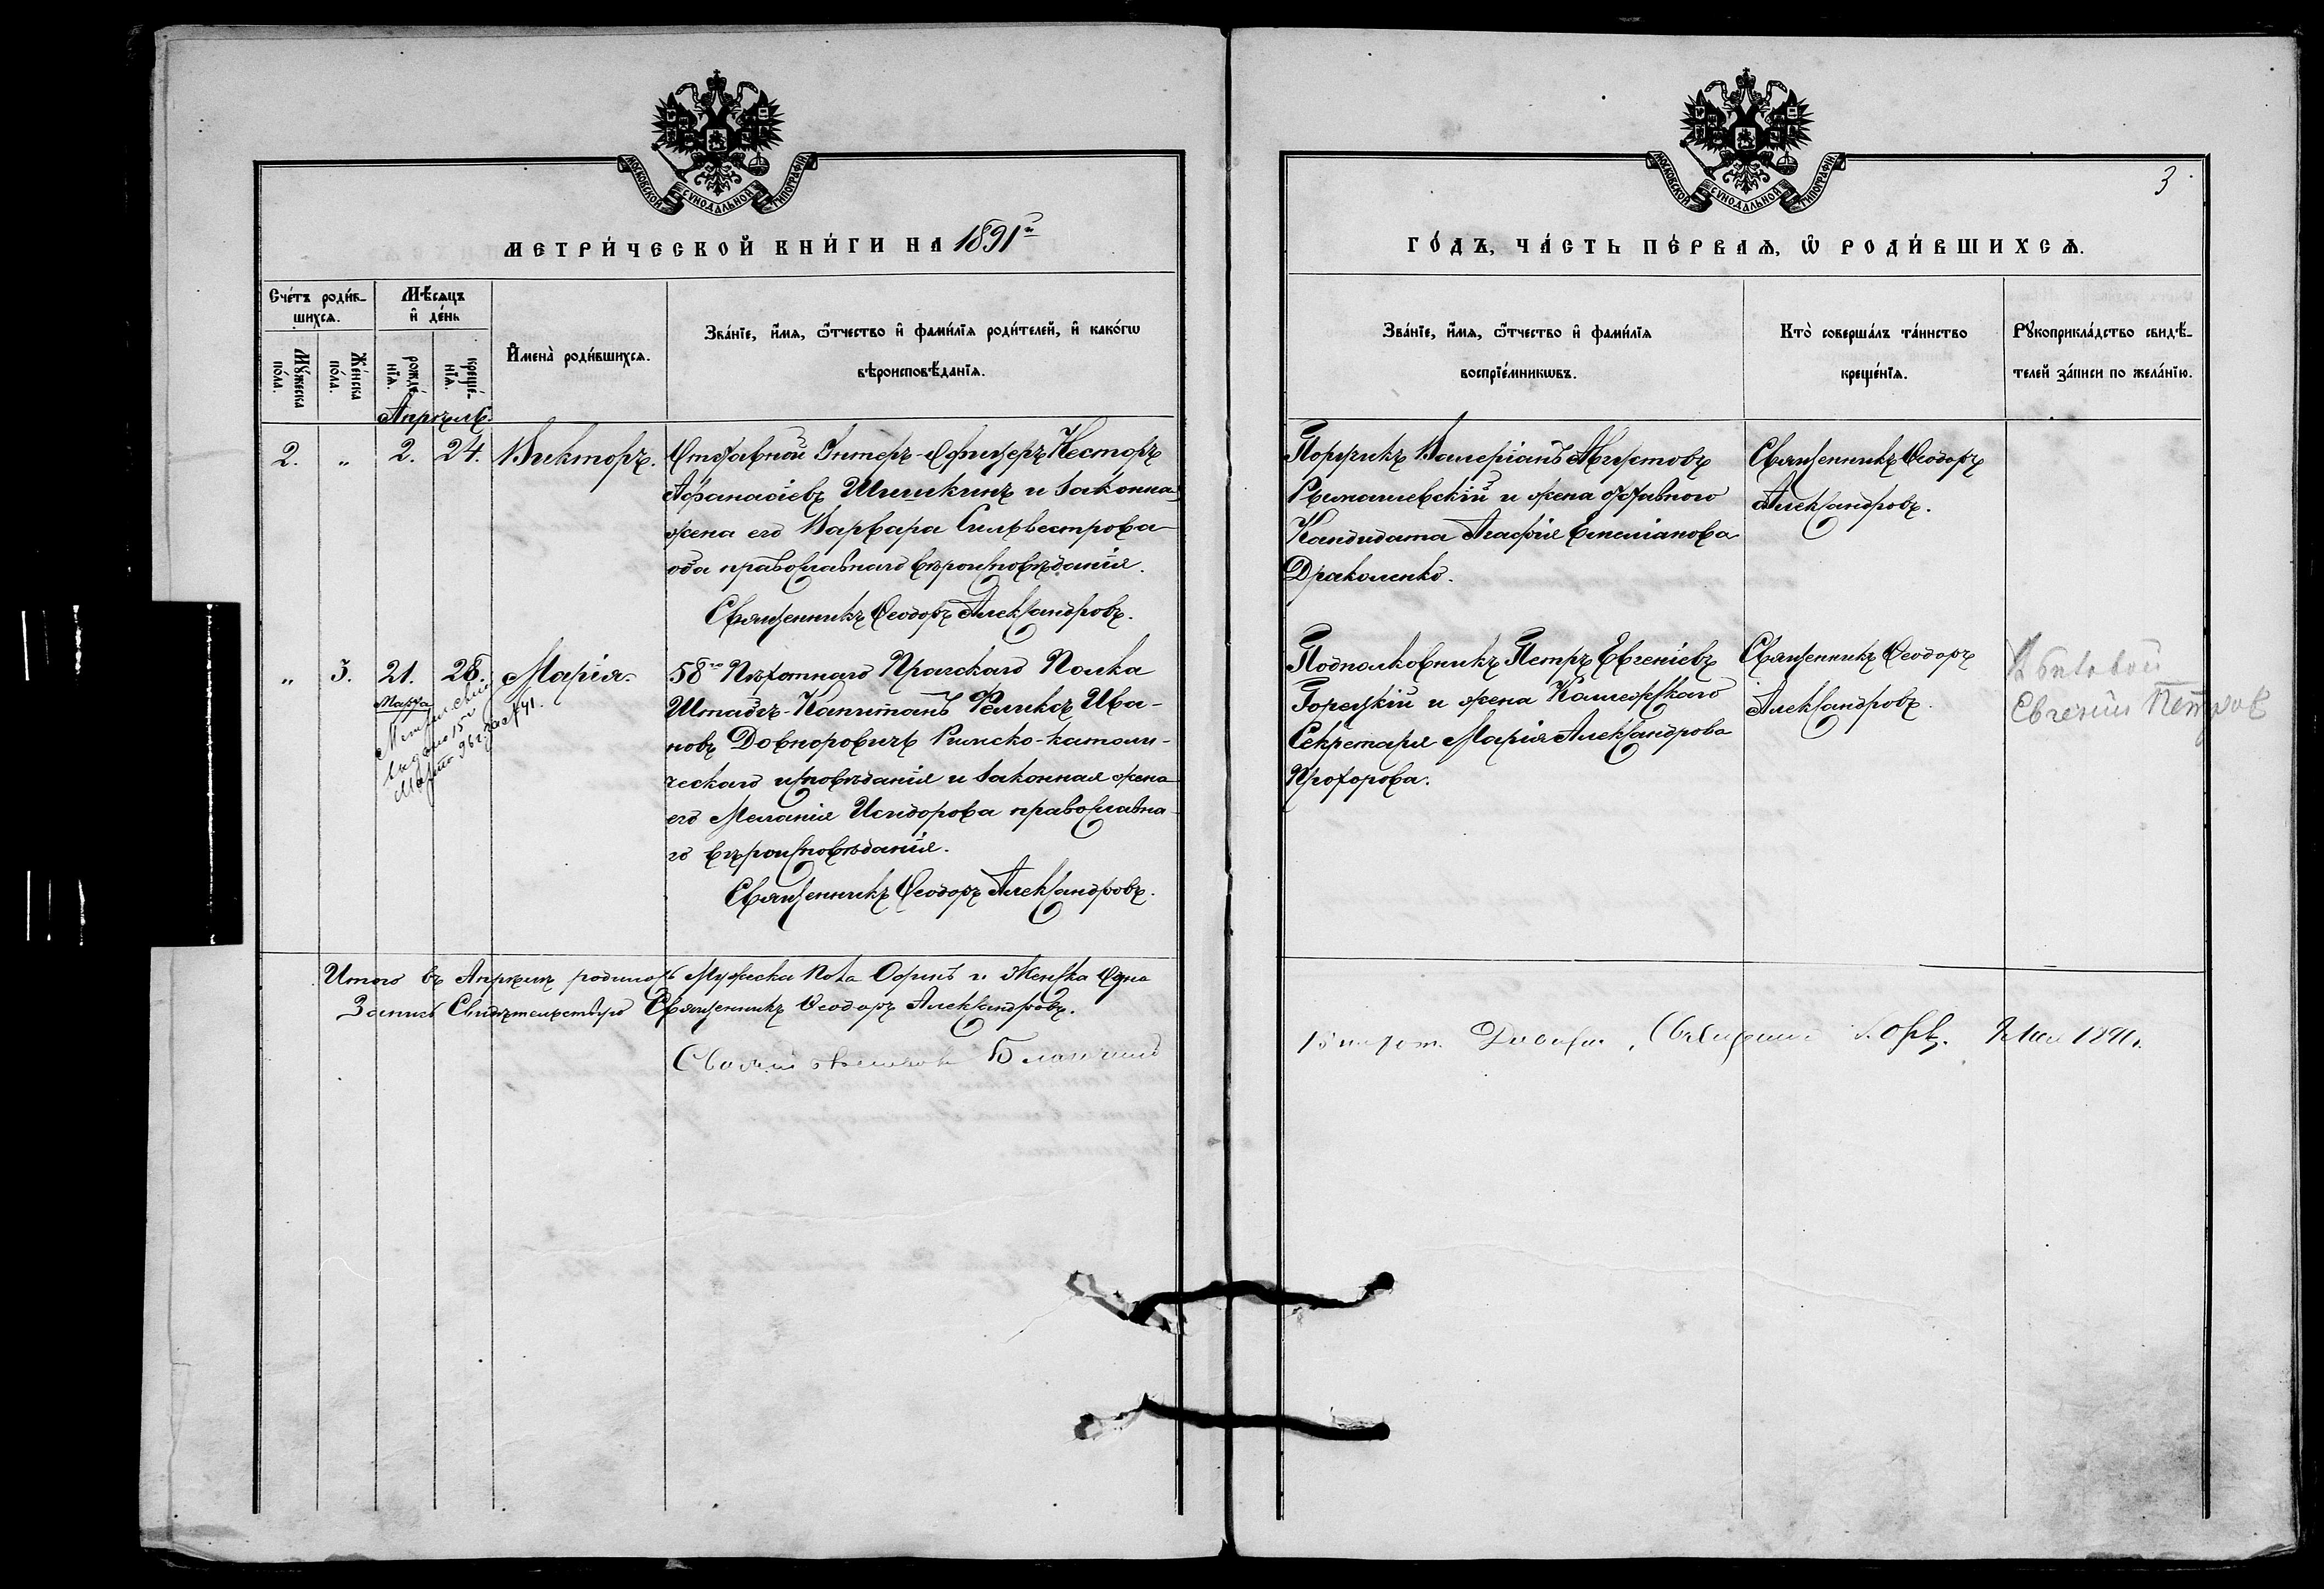 МОСКОВСКОЙ СѴНОДАЛЬНОЙ ТИПОГРАФІИ
МЕТРИ́ЧЕСКОЙ КНИ́ГИ НА 1891й
Сче́тъ роди́в-
шихсѧ.
Мѣ́сѧцъ
и҆ де́нь
Мꙋ́жеска
по́ла.
Же́нска
по́ла.
рожде́-
нїѧ.
креще́-
нїѧ.
И҆мена̀ роди́вшихсѧ.
Зва́нїе, и҆́мѧ, ѻ҆́тчество и҆ фами́лїѧ роди́телей, и҆ како́гѡ
вѣроисповѣ́данїѧ.
Апрѣль.
2. „ 2. 24. Викторъ. Отставной Унтеръ-Офицеръ Несторъ
Афанасіевъ Шишкинъ и законная
жена его Варвара Сильвестрова
оба православнаго вѣроисповѣданія.
Священникъ Ѳеодоръ Александровъ.
„ 3. 21. 28. Марія. 58го Пѣхотнаго Прагскаго Полка
Марта
Штабсъ-Капитанъ Феликсъ Ива-
новъ Довноровичъ Римско-католи-
ческаго исповѣданія и законная жена
его Меланія Исидорова православна-
го вѣроисповѣданія.
Священникъ Ѳеодоръ Александровъ.
выдано 15го
Марта 96г. за № 41.
Итого въ Апрѣлѣ родилось Мужеска пола Одинъ и Женска Одна
Запись Свидѣтельствую Священникъ Ѳеодоръ Александровъ.
МОСКОВСКОЙ СѴНОДАЛЬНОЙ ТИПОГРАФІИ
3
ГО́ДЪ, ЧА́СТЬ ПЕ́РВАѦ, Ѡ҆ РОДИ́ВШИХСѦ.
Зва́нїе, и҆́мѧ, ѻ҆́тчество и҆ фами́лїѧ
воспрїе́мникѡвъ.
Кто̀ соверша́лъ та́инство
креще́нїѧ.
Рꙋкоприкла́дство свидѣ́-
телей за́писи по жела́нїю.
Поручикъ Валеріанъ Августовъ
и жена отставного
Кандидата Агафія Емеліанова
Драколенко.
Священникъ Ѳеодоръ
Александровъ.
Подполковникъ Петръ Евгеніевъ
Горецкій и жена Коллежскаго
Секретаря Марія Александрова
Прохорова.
Священникъ Ѳеодоръ
Александровъ.
Евгений Петров
1891г.